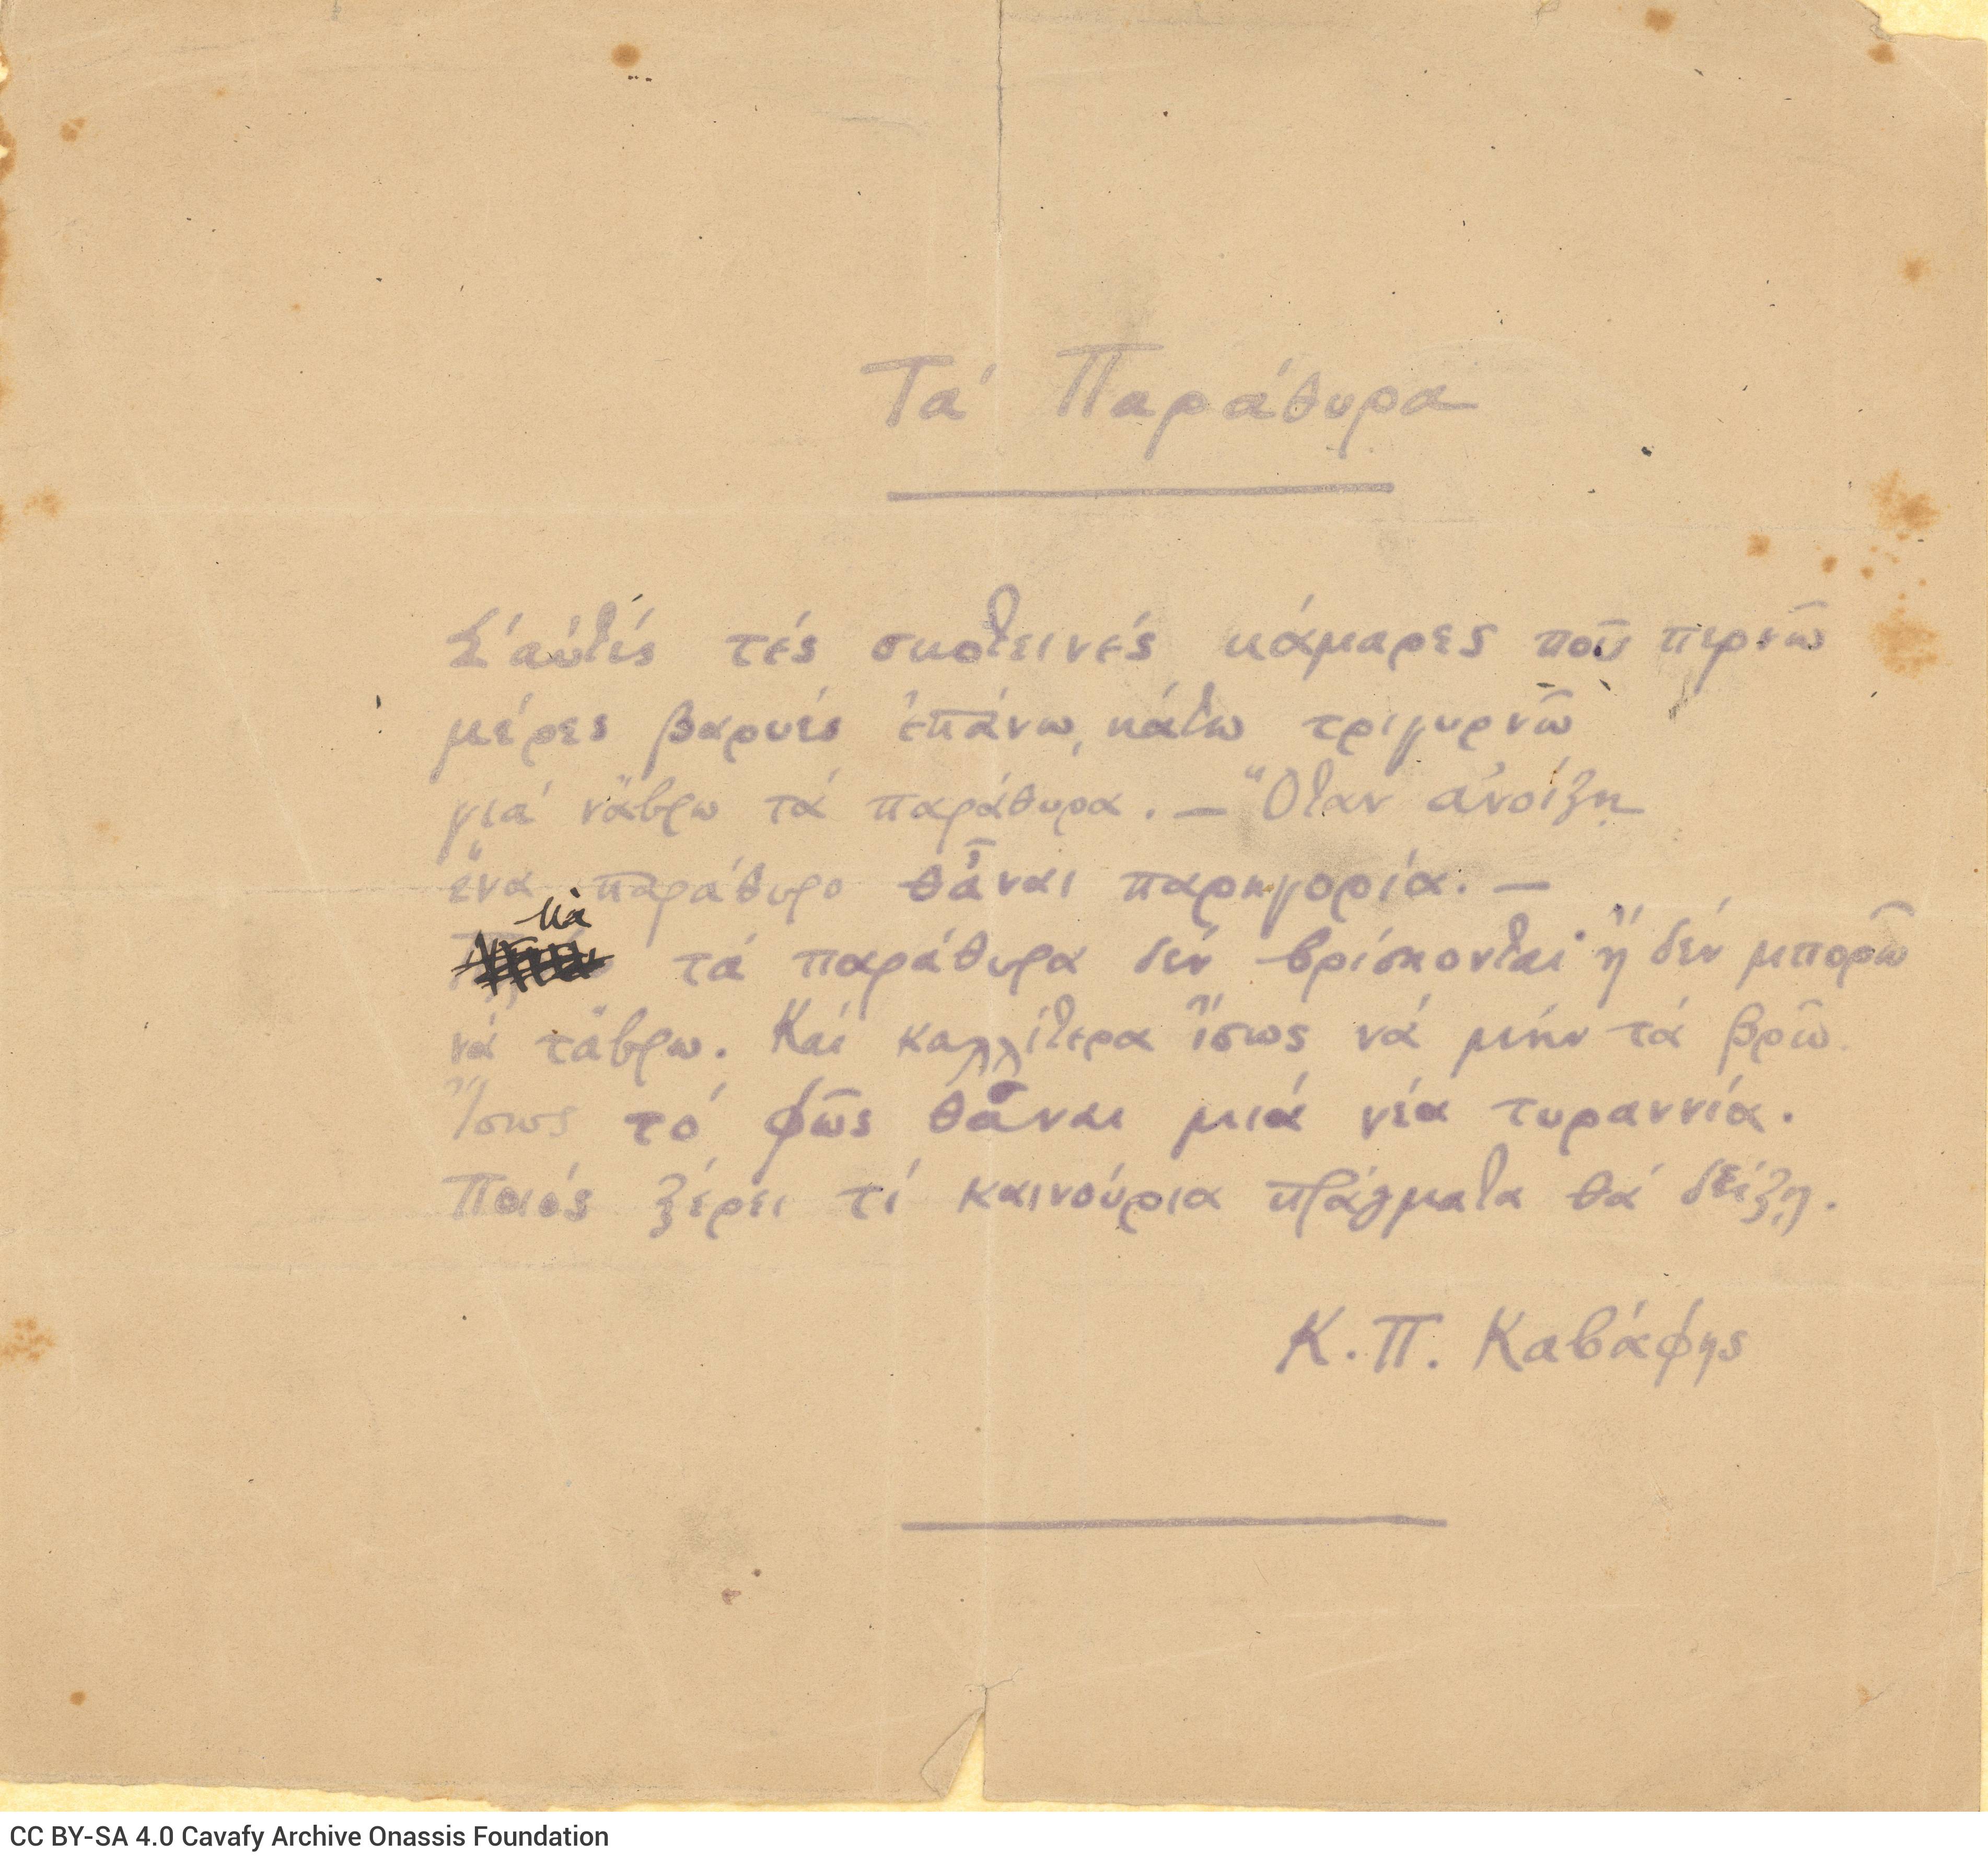 Τά Παράθυρα
Σ' αὐτές τές σκοτεινές κάμαρες ποῦ περνῶ
μέρες βαρυές ἐπάνω, κάτω τριγυρνῶ
γιά νἄβρω τά παράθυρα. — Ὅταν ἀνοίξῃ
ἕνα παράθυρο θἆναι παρηγορία. —
Μὰ
τά παράθυρα δέν βρίσκονται ἤ δέν μπορῶ
νά τἄβρω. Καί καλλίτερα ἴσως νά μήν τά βρῶ.
Ἴσως τό φῶς θἆναι μιά νέα τυραννία.
Ποιός ξέρει τί καινούρια πράγματα θά δείξῃ.
Κ. Π. Καβάφης
CC BY-SA 4.0 Cavafy Archive Onassis Foundation